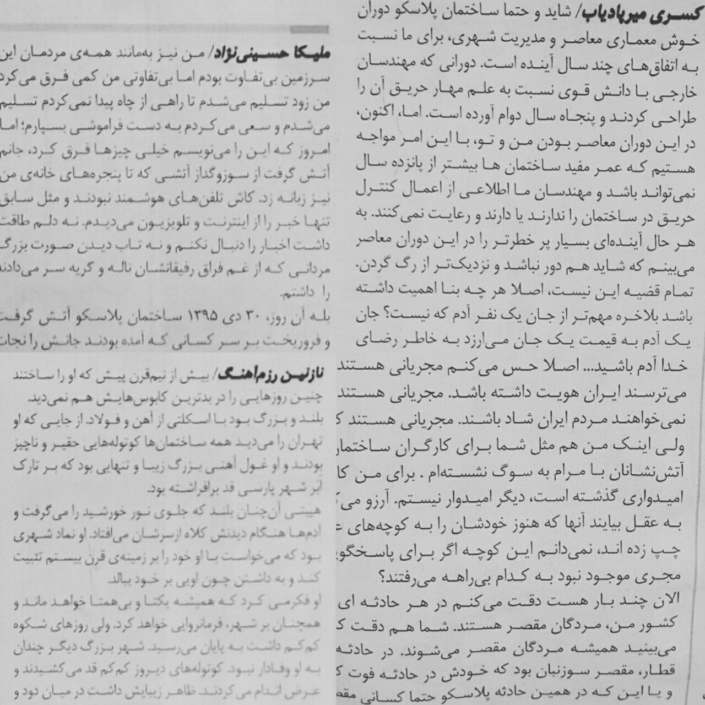 کسری میرپادیاب/ شاید و حتما ساختمان پلاسکو دوران
خوش معماری معاصر و مدیریت شهری، برای ما نسبت
به اتفاق‌های چند سال آینده است. دورانی که مهندسان
خارجی با دانش قوی نسبت به علم مهار حریق آن را
طراحی کردند و پنجاه سال دوام آورده است. اما، اکنون،
در این دوران معاصر بودن من و تو، با این امر مواجه
هستیم که عمر مفید ساختمان ها بیشتر از پانزده سال
نمی‌تواند باشد و مهندسان ما اطلاعی از اعمال کنترل
حریق در ساختمان را ندارند یا دارند و رعایت نمی‌کنند. به
هر حال آینده‌ای بسیار پر خطرتر را در این دوران معاصر
می‌بینم که شاید هم دور نباشد و نزدیک‌تر از رگ گردن.
تمام قضیه این نیست، اصلا هر چه بنا اهمیت داشته
باشد بلاخره مهم‌تر از جان یک نفر آدم که نیست؟ جان
یک آدم به قیمت یک جان می‌ارزد به خاطر رضای
خدا آدم باشید... اصلا حس می‌کنم مجریانی هستند
می‌ترسند ایران هویت داشته باشد. مجریانی هستند
نمی‌خواهند مردم ایران شاد باشند. مجریانی هستند
ولی اینک من هم مثل شما برای کارگران ساختمان
آتش‌نشانان با مرام به سوگ نشسته‌ام . برای من
امیدواری گذشته است، دیگر امیدوار نیستم. آرزو
به عقل بیایند آنها که هنوز خودشان را به کوچه‌های
چپ زده اند، نمی‌دانم این کوچه اگر برای پاسخگویی
مجری موجود نبود به کدام بی‌راهه می‌رفتند؟
الان چند بار هست دقت می‌کنم در هر حادثه ای
کشور من، مردگان مقصر هستند. شما هم دقت
می‌بینید همیشه مردگان مقصر می‌شوند. در حادثه
قطار، مقصر سوزنبان بود که خودش در حادثه فوت
و یا این که در همین حادثه پلاسکو حتما کسانی مقصر
ملیکا حسینی‌نژاد/ من نیز به‌مانند همه‌ی مردمان این
سرزمین بی‌تفاوت بودم اما بی‌تفاوتی من کمی فرق می‌کرد
من زود تسلیم می‌شدم تا راهی از چاه پیدا نمی‌کردم تسلیم
می‌شدم و سعی می‌کردم به دست فراموشی بسپارم؛ اما
امروز که این را می‌نویسم خیلی چیزها فرق کرد، جانم
آتش گرفت از سوزوگداز آتشی که تا پنجره‌های خانه‌ی من
نیز زبانه زد. کاش تلفن‌های هوشمند نبودند و مثل سابق
تنها خبر را از اینترنت و تلویزیون می‌دیدم. نه دلم طاقت
داشت اخبار را دنبال نکنم و نه تاب دیدن صورت بزرگ
مردانی که از غم فراق رفیقانشان ناله و گریه سر می‌دادند
را داشتم.
بله آن روز، ۳۰ دی ۱۳۹۵ ساختمان پلاسکو آتش گرفت
و فروریخت بر سر کسانی که آمده بودند جانش را نجات
نازلین رزم‌آهنگ/ بیش از نیم‌قرن پیش که او را ساختند
چنین روزهایی را در بدترین کابوس‌هایش هم نمی‌دید.
بلند و بزرگ بود با اسکلتی از آهن و فولاد. از جایی که او
تهران را می‌دید همه ساختمان‌ها کوتوله‌هایی حقیر و ناچیز
بودند و او غول آهنی بزرگ زیبا و تنهایی بود که بر تارک
ابر شهر پارسی قد برافراشته بود.
هیبتی آن‌چنان بلند که جلوی نور خورشید را می‌گرفت و
آدم‌ها هنگام دیدنش کلاه ازسرشان می‌افتاد. او نماد شهری
بود که می‌خواست با او خود را بر زمینه‌ی قرن بیستم تثبیت
کند و به داشتن چون اویی بر خود ببالد.
او فکرمی کرد که همیشه یکتا و بی‌همتا خواهد ماند و
همچنان بر شهر، فرمانروایی خواهد کرد. ولی روزهای شکوه
کم‌کم داشت به پایان می‌رسید. شهر بزرگ دیگر چندان
به او وفادار نبود. کوتوله‌های دیروز کم‌کم قد می‌کشیدند و
عرض اندام می‌کردند. ظاهر زیبایش داشت در میان دود و